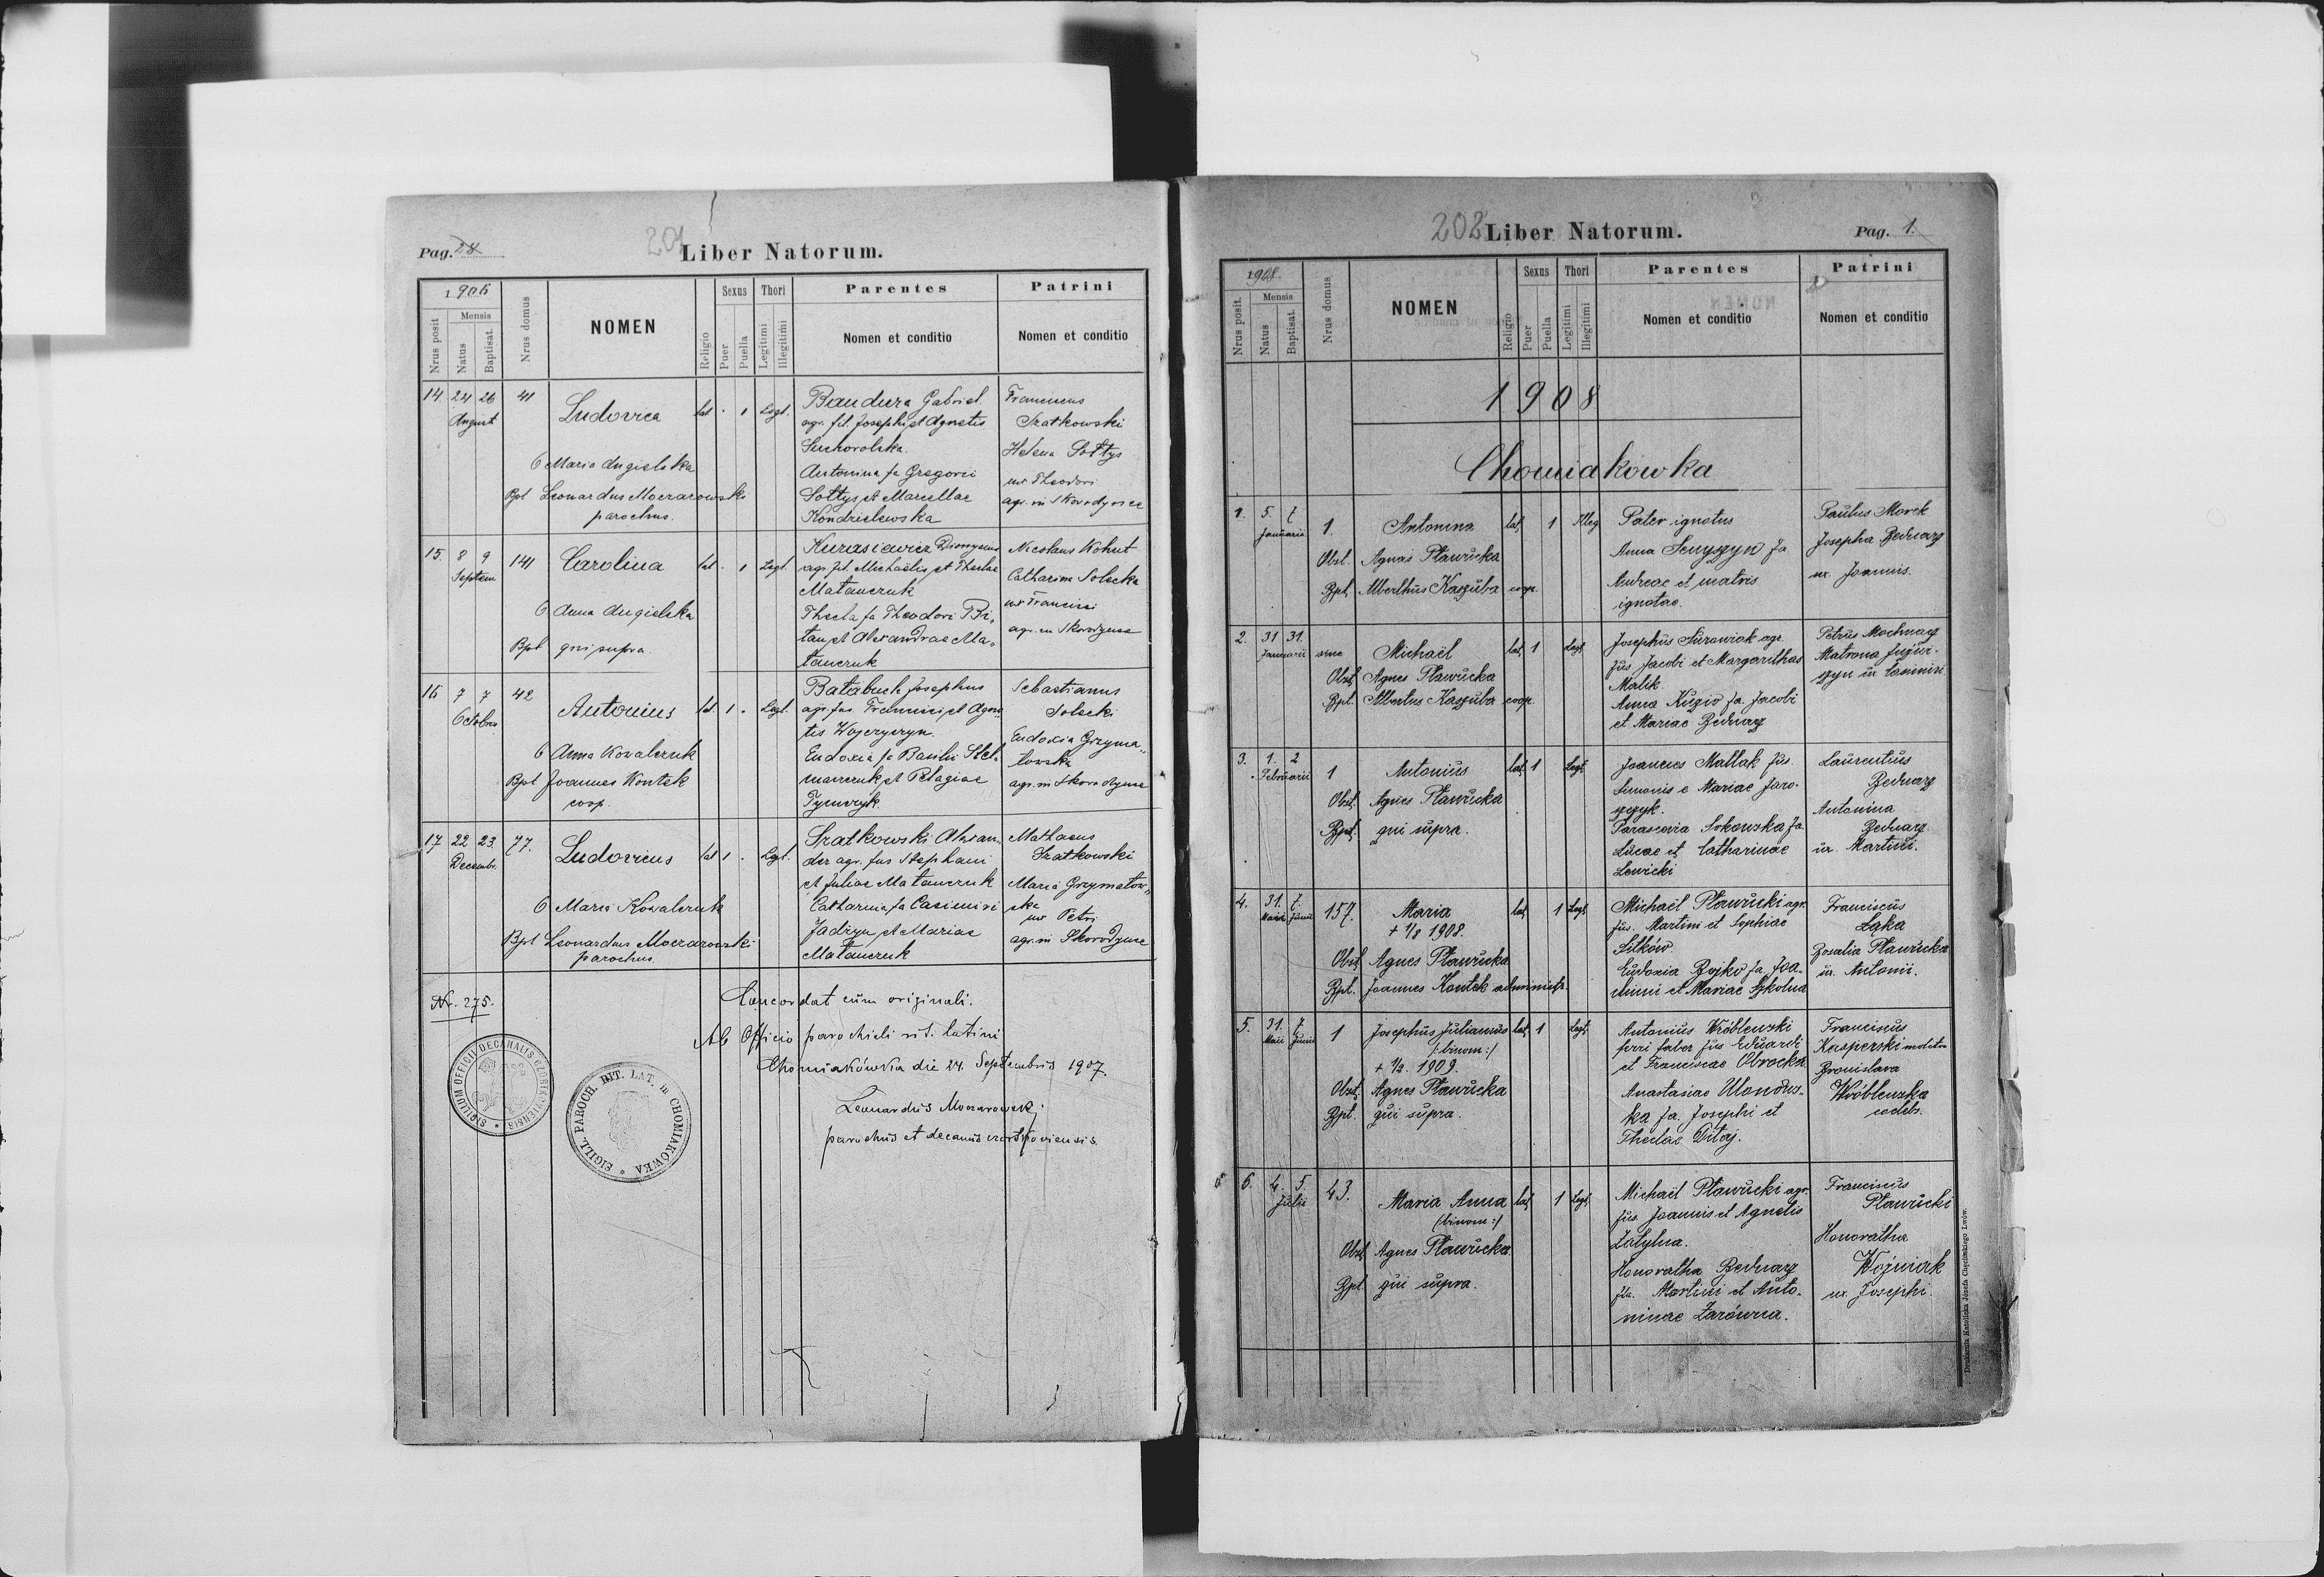 Pag. 28
201
Liber Natorum.
1906
Nrus posit
Mensis
Natus
Baptisat.
Nrus domus
NOMEN
Religio
Sexus
Puer
Puella
Thori
Legitimi
Illegitimi
Parentes
Nomen et conditio
Patrini
Nomen et conditio
14. 24 26 41
August
Ludovica
lat . 1 Legt.
Bandura Gabriel
agr. fil. Josephi et Agnetis
Suchorolska.
Antonina fa Gregorii
Sołtys et Marcellae
Kondzielewska
Franciscus
Szatkowski
Helena Sołtys
ux Theodori
agr. in Skorodynce
O Maria Angielska
Bpt Leonardus Moczarowski
parochus.
15. 8 9 141
Septem
Carolina
lat . 1 Legt.
Kurasiewicz Dionysius
agr. fil. Michaelis et Theclae
Matanczuk
Thecla fa Theodori Bi„
tan et Alexandrae Ma„
tanczuk
Nicolaus Kohut
Catharina Solecka
ux Francisci
agr. in Skorodynce
O Anna Angielska
Bpt qui supra.
16 7 7 42
Octobris
Antonius
lat. 1 . Legt.
Batabuch Josephus
agr. fus Francisci et Agne„
tis Wojczyszyn.
Eudoxia fa Basilii Stel„
maszczuk et Pelagiae
Tymczyk.
Sebastianus
Solecki
Eudoxia Grzyma„
łowska
agr. in Skorodynce
O Anna Kowalczuk
Bpt Joannes Kontek
coop.
17 22 23 77.
Decembr.
Ludovicus
lat 1 . Legt.
Szatkowski Alexan„
der agr. fus Stephani
et Juliae Matanczuk
Catharina fa Casimiri
Jadzyn et Mariae
Matanczuk
Mathaeus
Szatkowski
Maria Grzymałow„
ska
ux Petri
agr. in Skorodynce
O Maria Kowalczuk
Bpt Leonardus Moczarowski
parochus.
Nr. 275.
Concordat cum originali.
Ab Officio parochiali rit. latini
Chomiakówka die 24. Septembris 1907.
Leonardus Moczarowski
parochus et decanus czortkoviensis.
SIGILLUM OFFICII DECANALIS CZORTKOVIENSIS
SIGILL. PAROCH. RIT. LAT. in CHOMIAKÓWKA
202
Liber Natorum.
Pag. 1.
1908
Nrus posit.
Mensis
Natus
Baptisat.
Nrus domus
NOMEN
Religio
Sexus
Puer
Puella
Thori
Legitimi
Illegitimi
Parentes
Nomen et conditio
Patrini
Nomen et conditio
1908
Chomiakówka
1. 5. 7. 1.
Januarii
Antonina
lat. 1 Illeg
Pater ignotus
Anna Senyszyn fa
Andreae et matris
ignotae.
Paulus Morek
Josepha Bednarz
ux. Joannis.
Obst. Agnes Pławucka
Bpt. Alberthus Kaszuba coop.
2. 31 31. sine
Januarii
Michaël
lat. 1 Legt.
Josephus Surowiak agr.
fus Jacobi et Margarithae
Malik.
Anna Kuziw fa. Jacobi
et Mariae Bednarz
Petrus Mochnacz
Matrona
ux Casimiri
Obst. Agnes Pławucka
Bpt. Albertus Kaszuba coop.
3. 1. 2 1
Februarii
Antonius
lat. 1 Legt.
Joannes Matlak fus.
Simonis e Mariae Jaro-
szczyk.
Parascevia Sokowska fa
Lucae et Catharinae
Lewicki
Laurentius
Bednarz
Antonina
Bednarz
ux. Martini.
Obst. Agnes Pławucka
Bpt. qui supra.
4. 31. 7. 157.
Maii Junii
Maria
+ 1/8 1908.
lat. 1 Legt.
Michaël Pławucki agr.
fus. Martini et Sophiae
Sitków
Eudoxia Bojko fa Joa-
nnis et Mariae Szkolna
Franciscus
Łąka
Rosalia Pławucka
ux. Antonii.
Obst. Agnes Pławucka
Bpt. Joannes Kontek administr.
5. 31. 7. 1
Maii Junii
Josephus Julianus
/:binom:/
+ 1/2. 1909.
lat. 1 Legt.
Antonius Wróblewski
ferri faber fus Eduardi
et Franciscae Obrocka.
Anastasiae
ka fa. Josephi et
Theclae Ditaj.
Franciscus
Kasperski molitor
Bronislava
Wróblewska
coelebs.
Obst. Agnes Pławucka
Bpt. qui supra.
6. 4. 5. 43.
Julii
Maria Anna
/binom:/
lat. 1 Legt.
Michaël Pławucki agr.
fus Joannis et Agnetis
Zatylna.
Honoratha Bednarz
fa. Martini et Anto-
ninae Żarówna.
Franciscus
Pławucki
Honoratha
Woźniak
ux. Josephi.
Obst. Agnes Pławucka
Bpt. qui supra.
Drukarnia Katolicka Józefa Chęcińskiego Lwów.